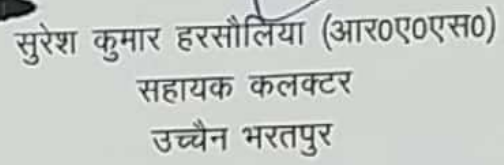 सुरेश कुमार हरसौलिया (आर०ए०एस०)
सहायक कलक्टर
उच्चैन भरतपुर